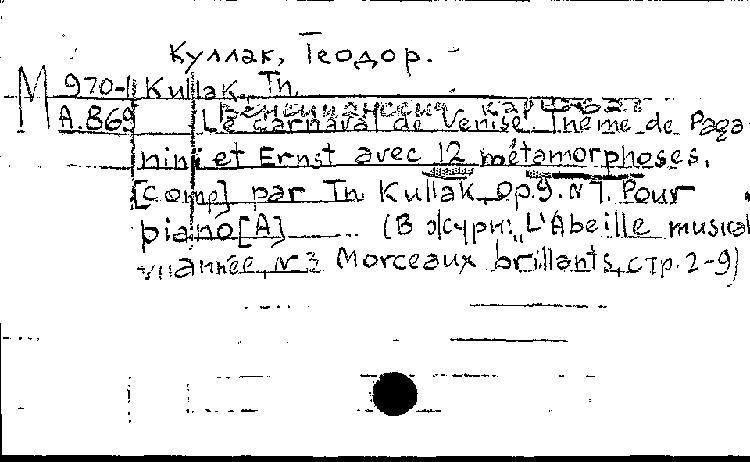 Куллак, Теодор.
М 970-1 Kullak, Th.
А.869 Венецианский карнавал
Le carnaval de Venise. Theme de Paga-
nini et Ernst avec 12 métamorphoses.
[comp] par Th Kullak, Op.9. N 1. Pour
piano [A] (В журн: "L'Abeille musical
année, N 3 Morceaux brillants, стр. 2-9)